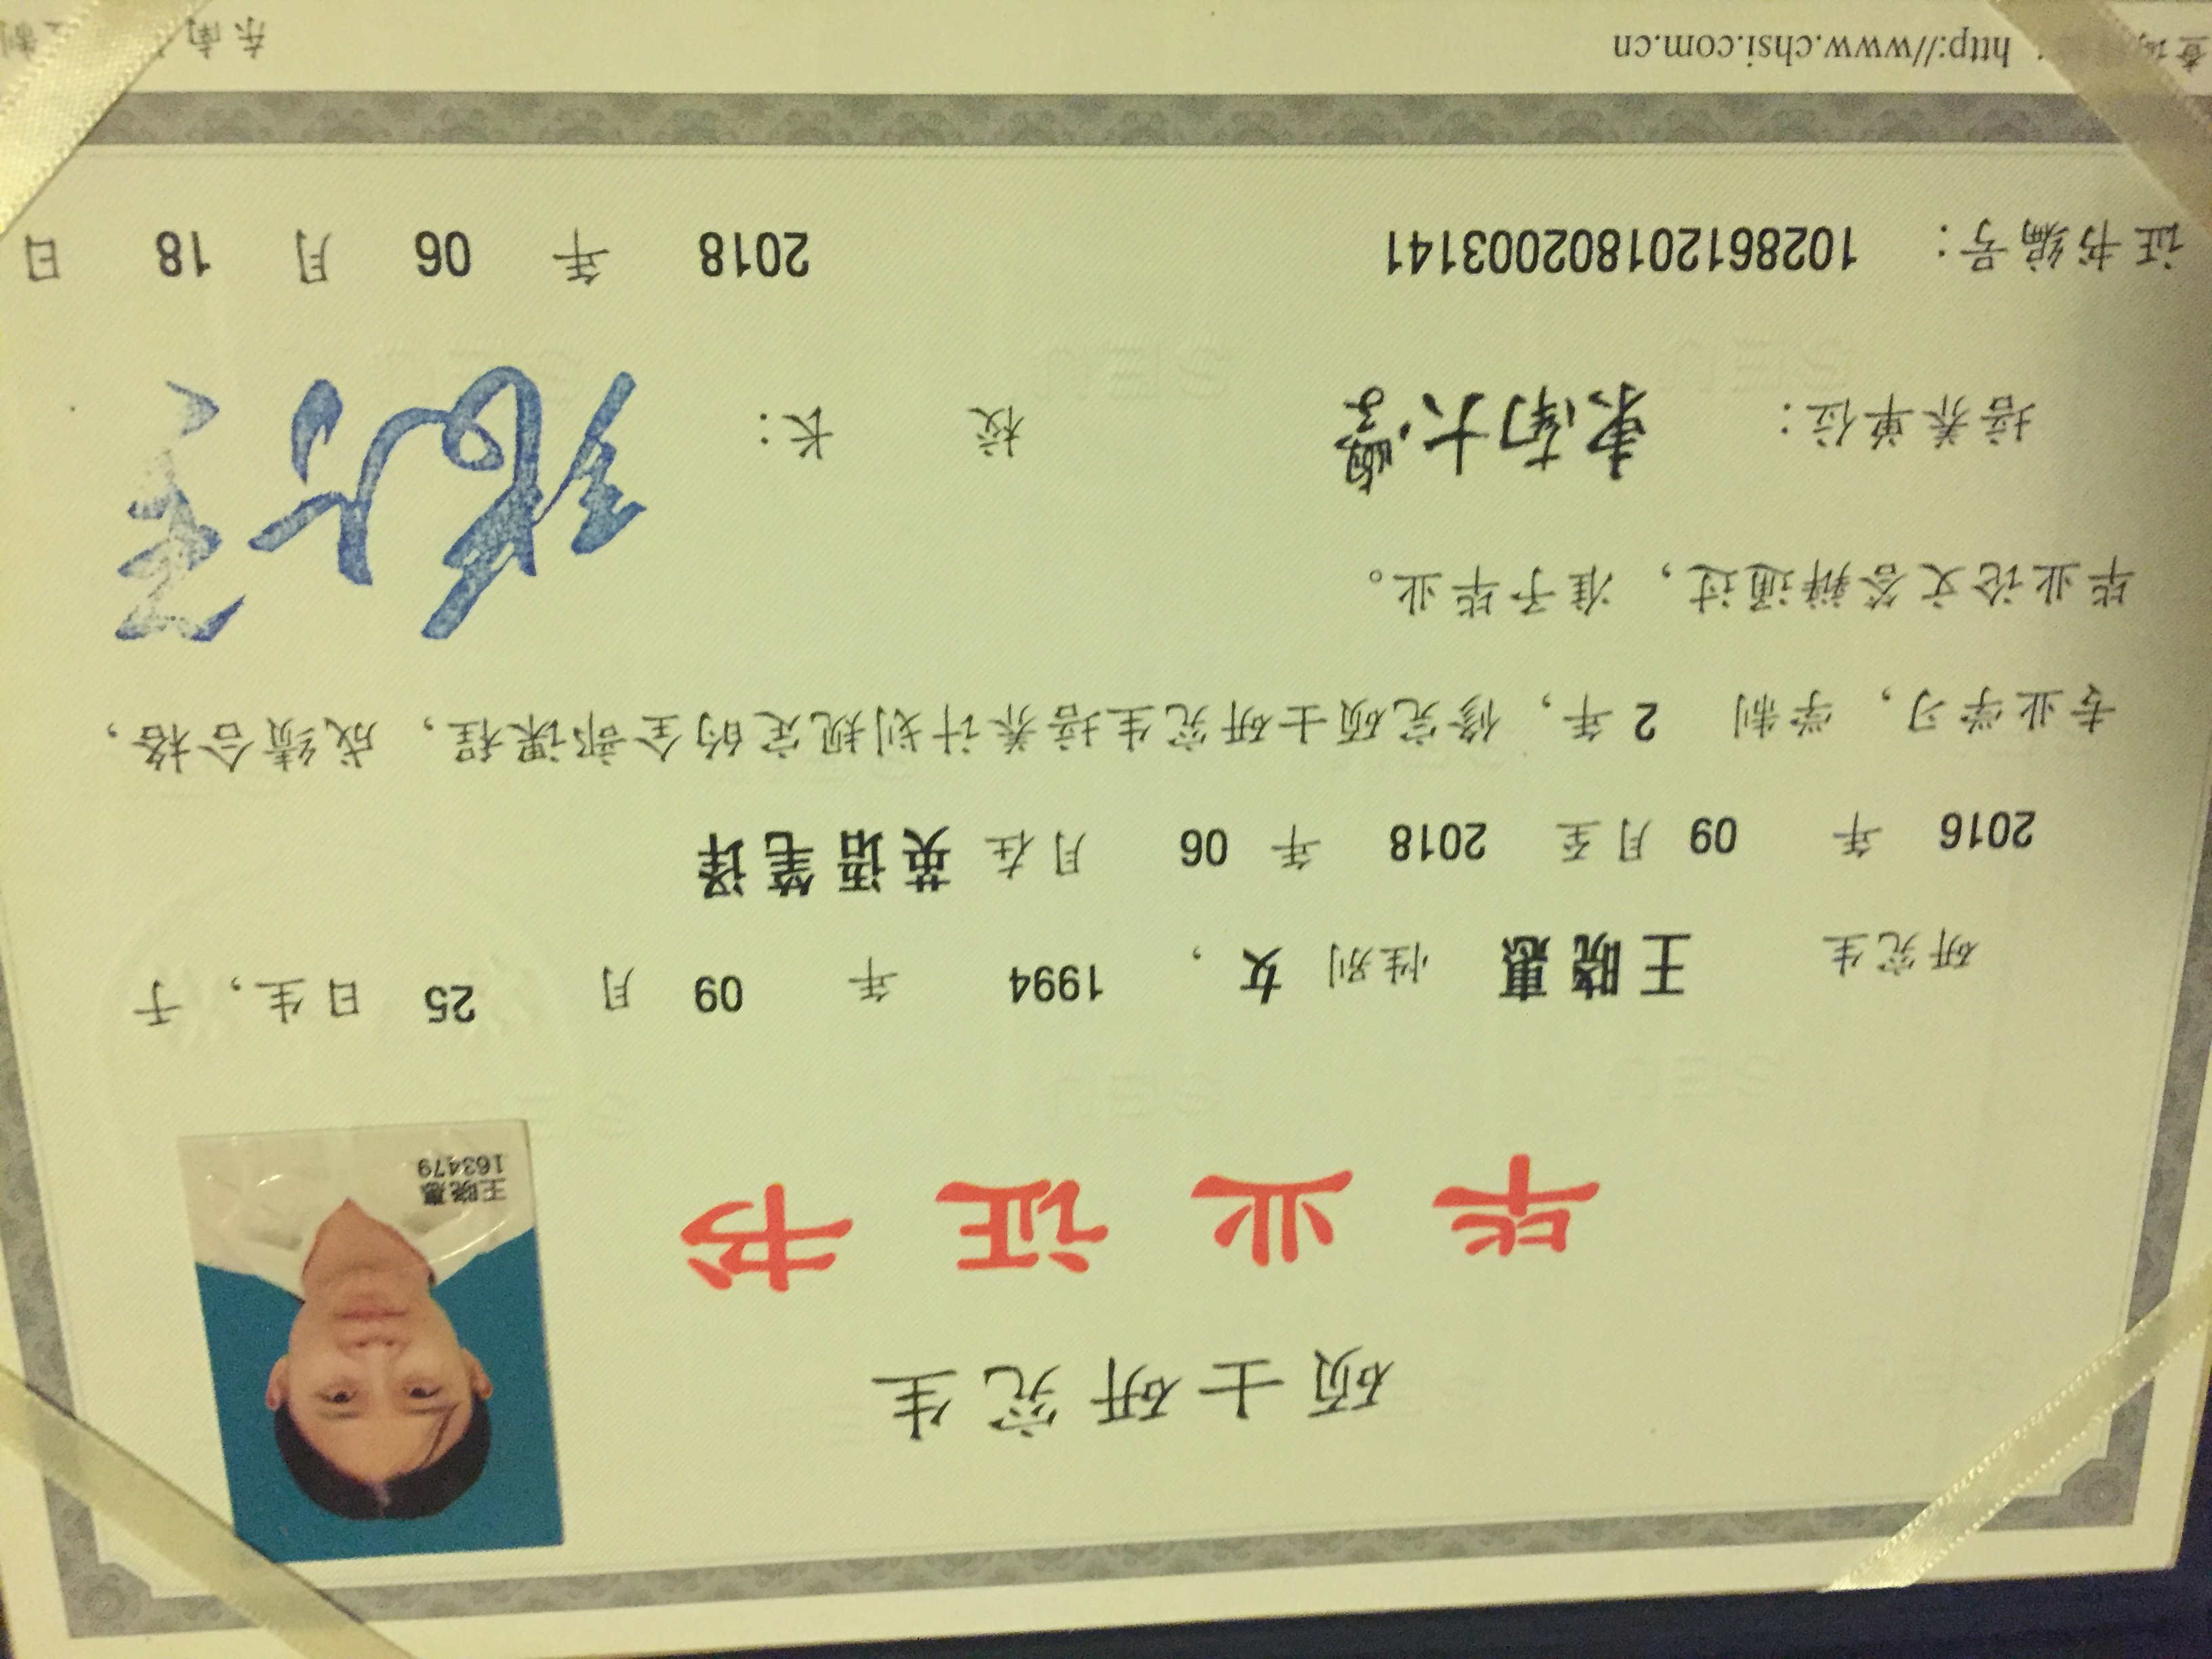 硕士研究生
毕业证书
王晓惠
163479
研究生 王晓惠 性别 女, 1994 年 09 月 25 日生, 于
2016 年 09 月至 2018 年 06 月在 英语笔译
专业学习, 学制 2 年, 修完硕士研究生培养计划规定的全部课程, 成绩合格,
毕业论文答辩通过, 准予毕业。
培养单位: 東南大學 校 长:
证书编号: 102861201802003141 2018 年 06 月 18 日
http://www.chsi.com.cn 东南
SEU